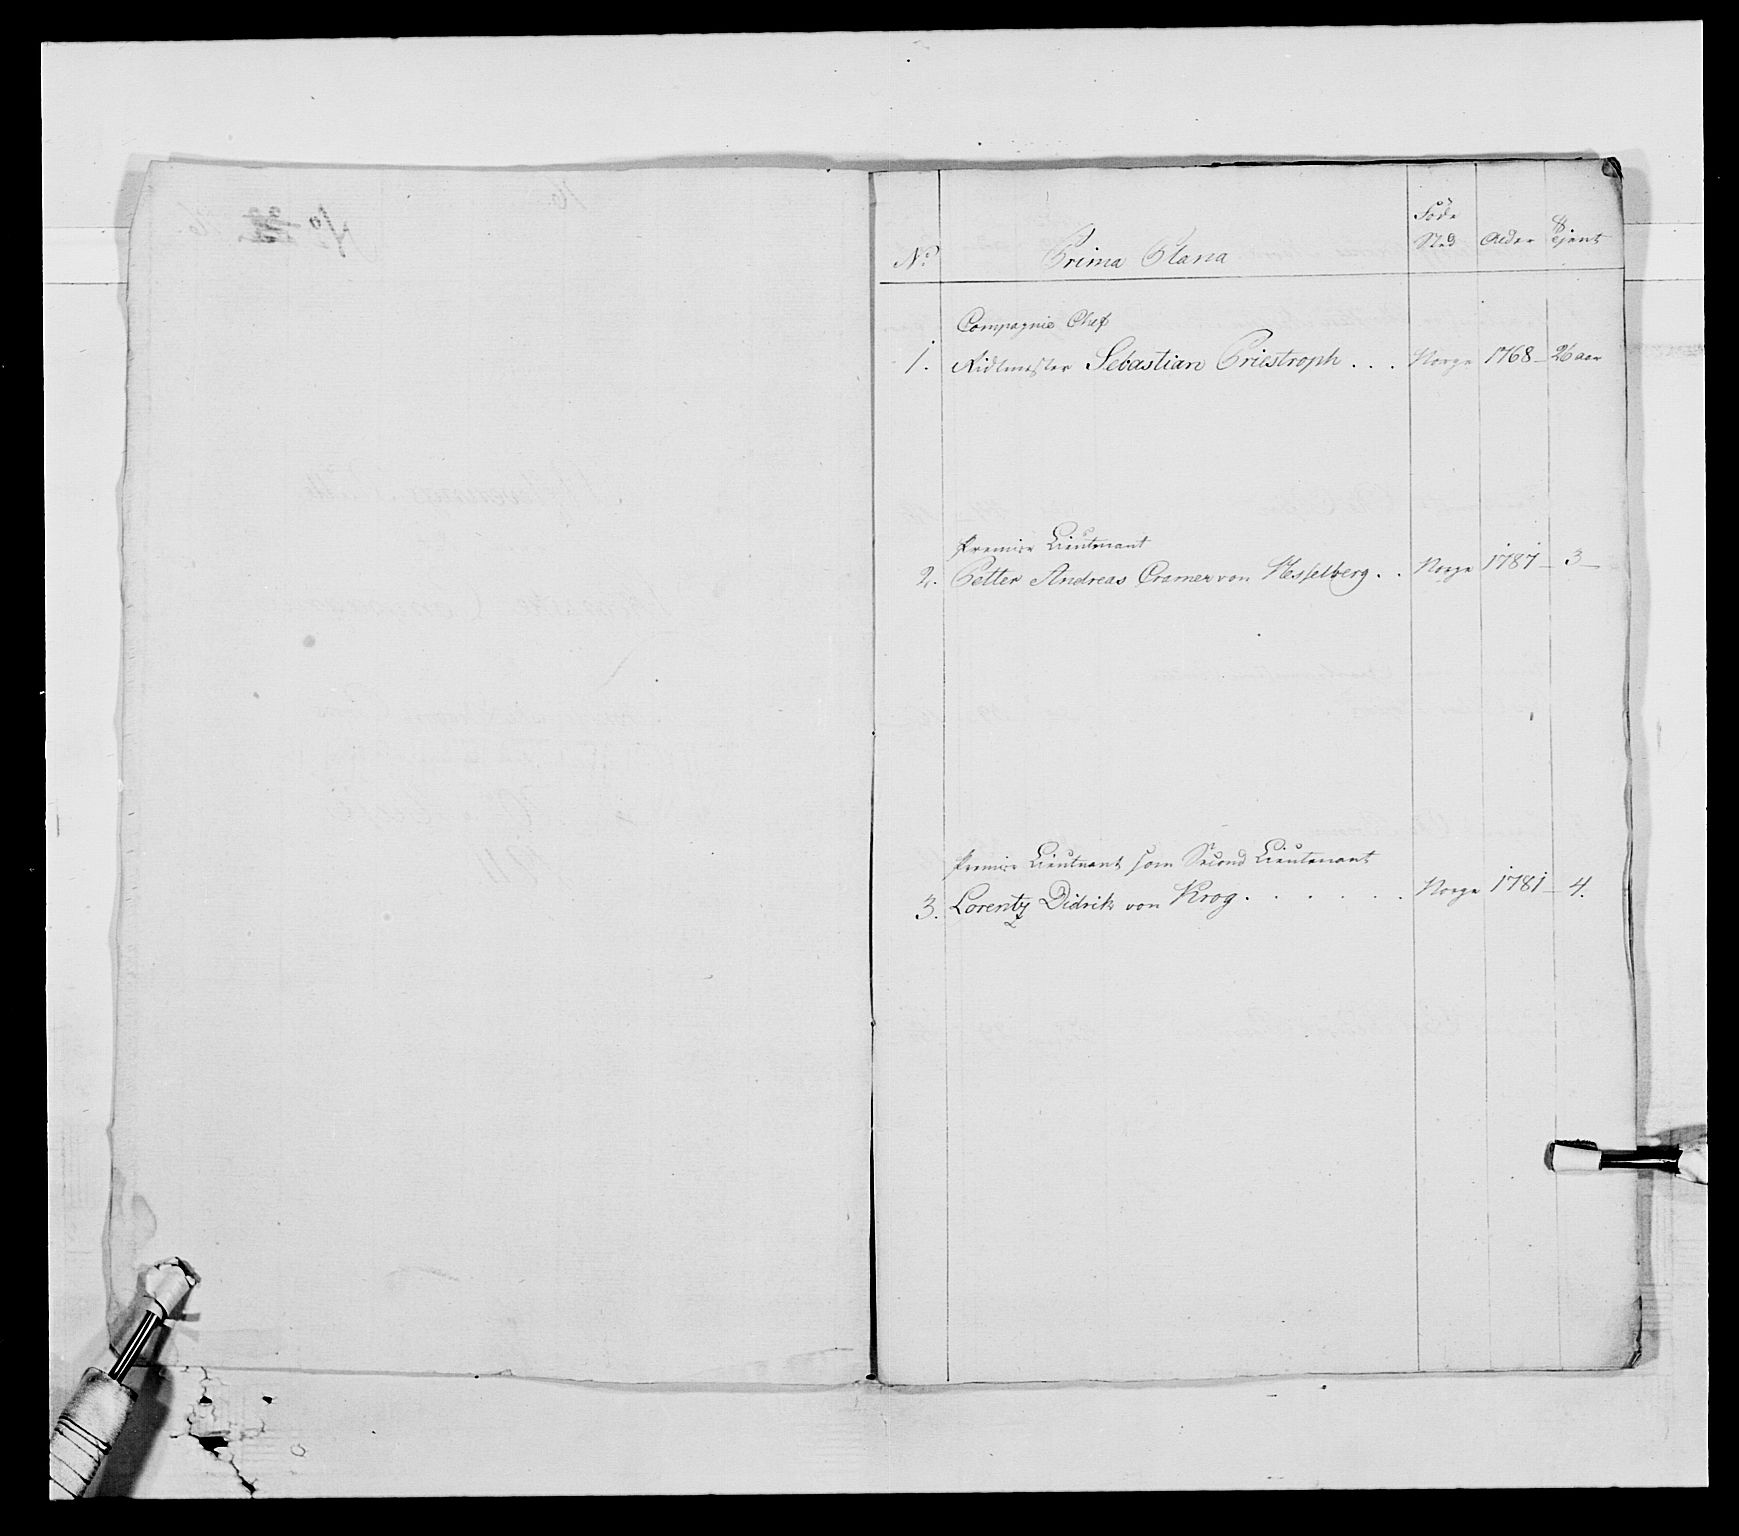 Føde
No. Prima Plana Sted Alder Tjent
Compagnie Chef
1. Ridtmester Sebastian Priestroph . . . Norge 1768 – 26 aar
Premier Lieutenant
2. Petter Andreas Cramer von Hesselberg . . Norge 1787 – 3 –
Premier Lieutnant som Second Lieutenant
3. Lorentz Didrik von Krog . . . . . . Norge 1781 – 4.